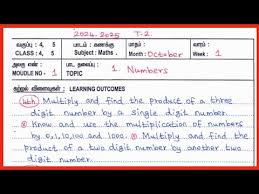 2024-2025 T-2
வகுப்பு : 4, 5 பாடம் : கணக்கு மாதம் : வாரம் :
CLASS : 4, 5 Subject : Maths. Month : October Week : 1
அலகு எண் : 1 பாடத் தலைப்பு : 1
MOUDLE NO : 1 TOPIC Numbers
கற்றல் விளைவுகள் : LEARNING OUTCOMES
4th Multiply and find the product of a three
digit number by a single digit number.
Know and use the multiplication of numbers
by 0,1,10,100 and 1000. Multiply and find the
product of a two digit number by another two
digit number.